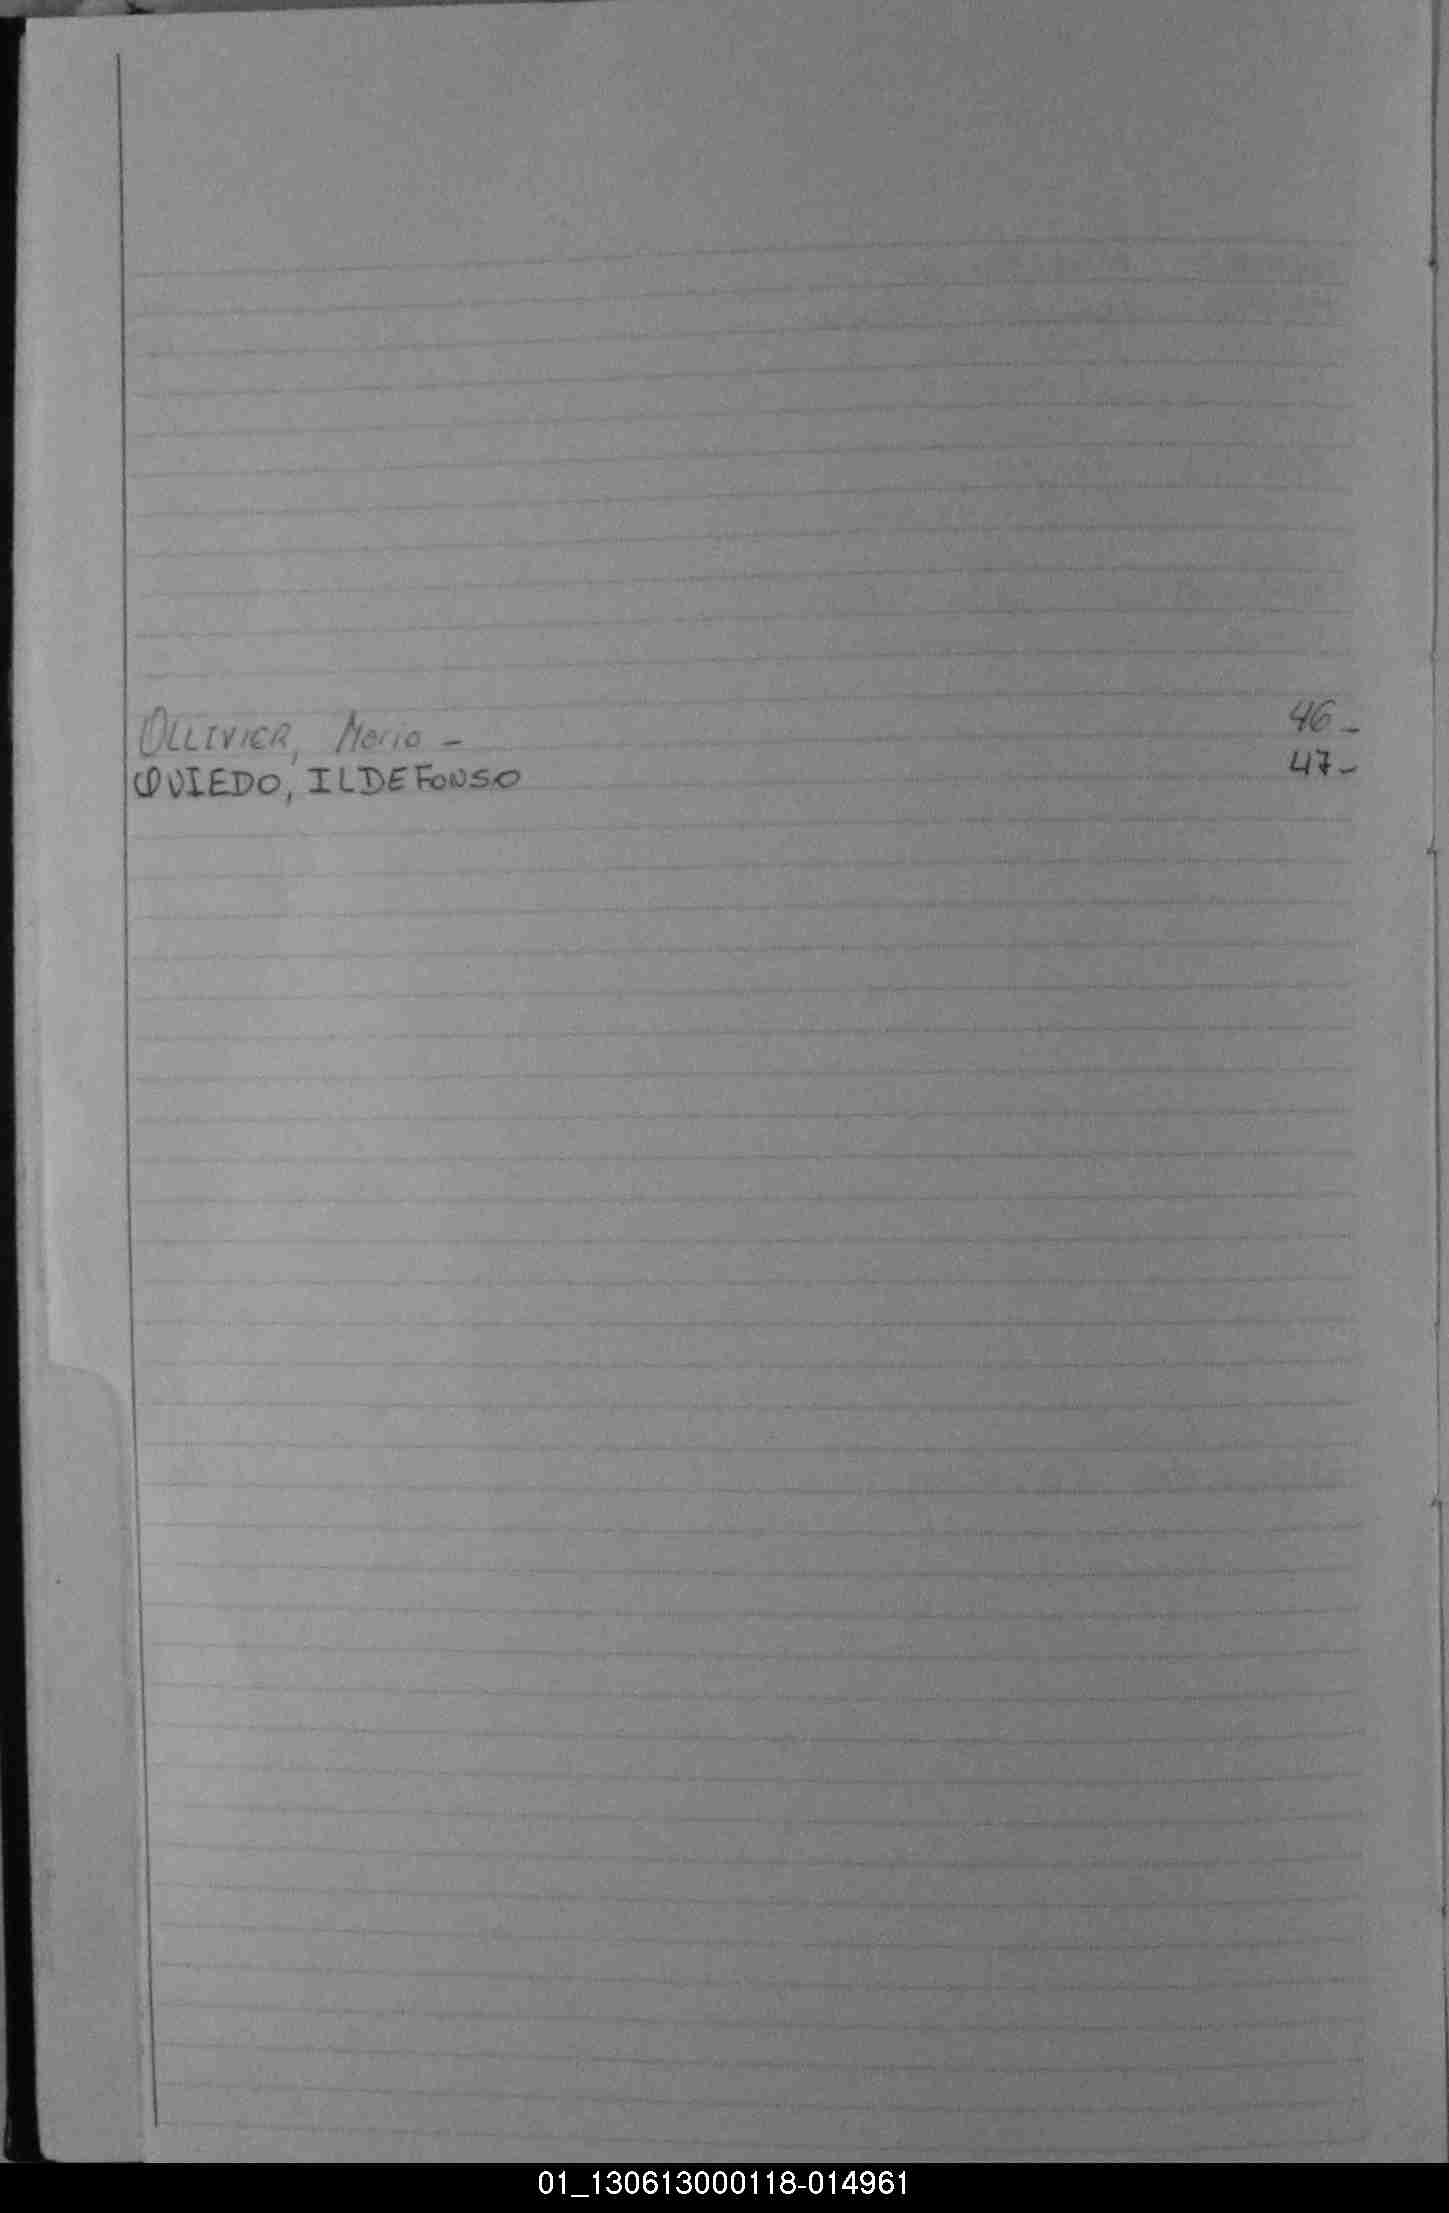 OLLIVIER, Mario - 46 -
OVIEDO, ILDEFONSO 47 -
01_130613000118-014961